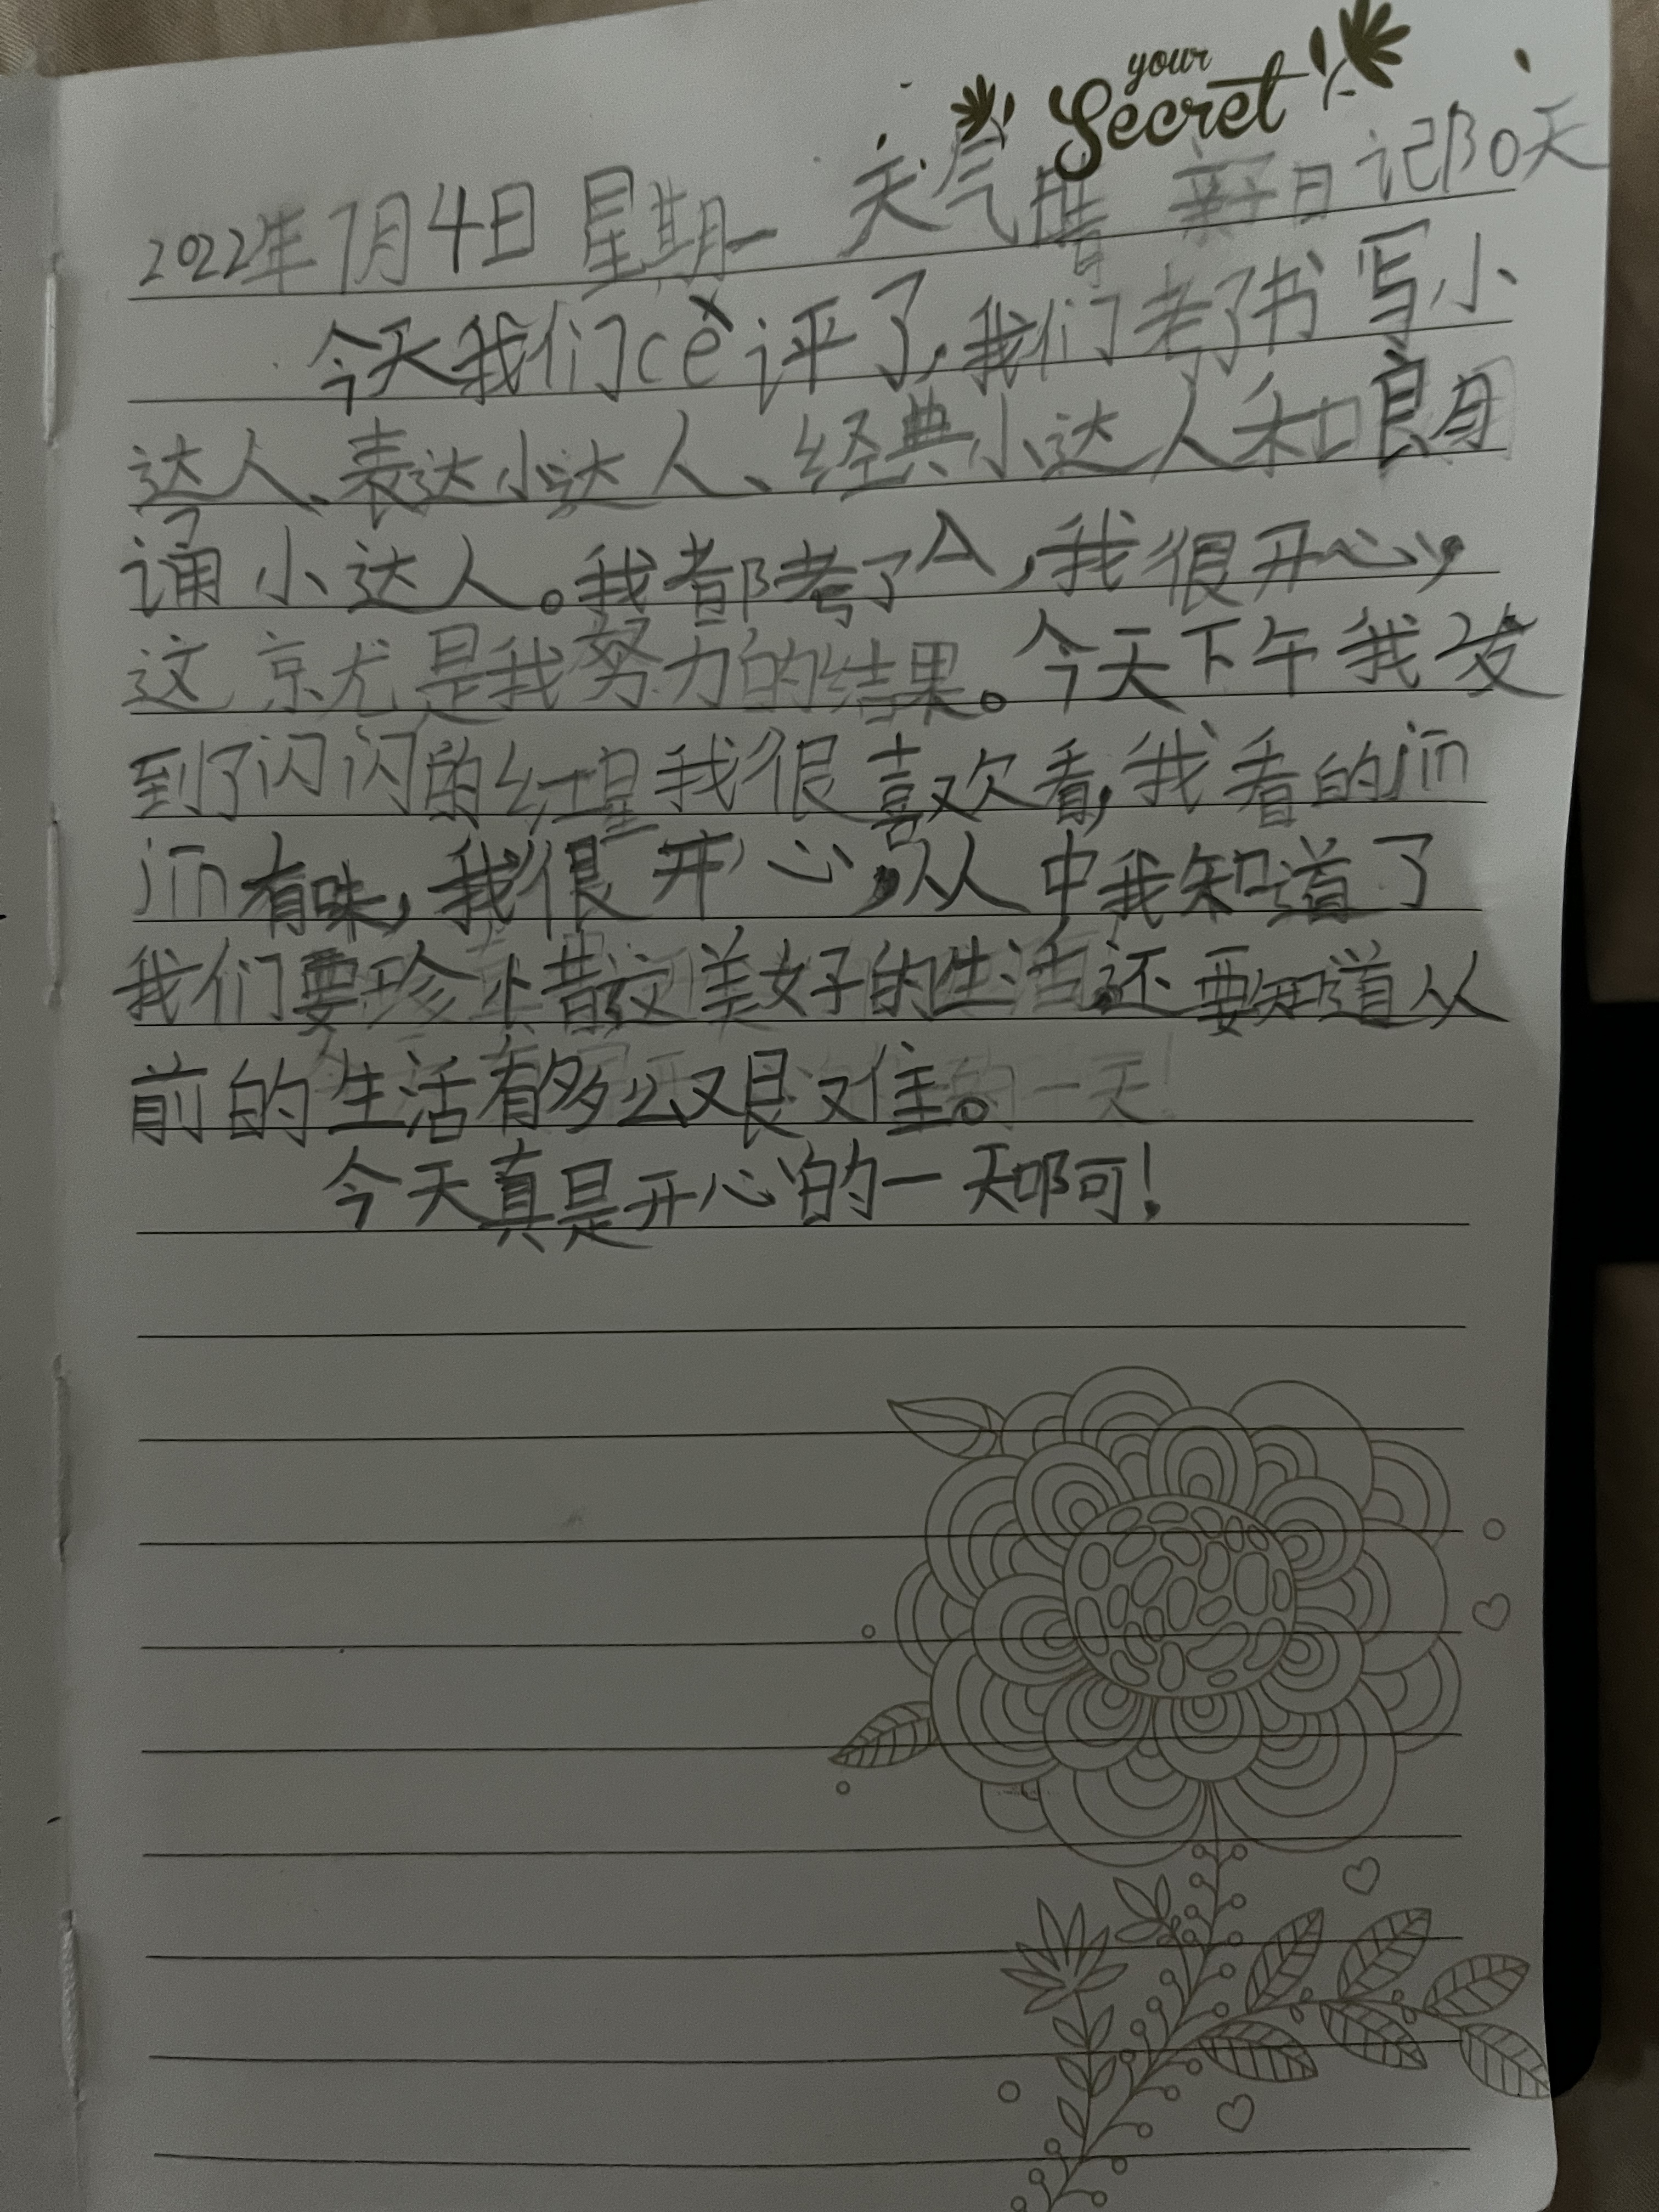 your
Secret
2022年7月4日 星期一 天气晴 亲子日记130天
今天我们cè评了,我们考了书写小
达人、表达小达人、经典小达人和朗
诵小达人。我都考了A,我很开心,
这就是我努力的结果。今天下午我
到了闪闪的红星我很喜欢看,我看的jīn
jīn有味,我很开心,从中我知道了
我们要珍惜这美好的生活,还要知道从
前的生活有多么艰难。
今天真是开心的一天啊!